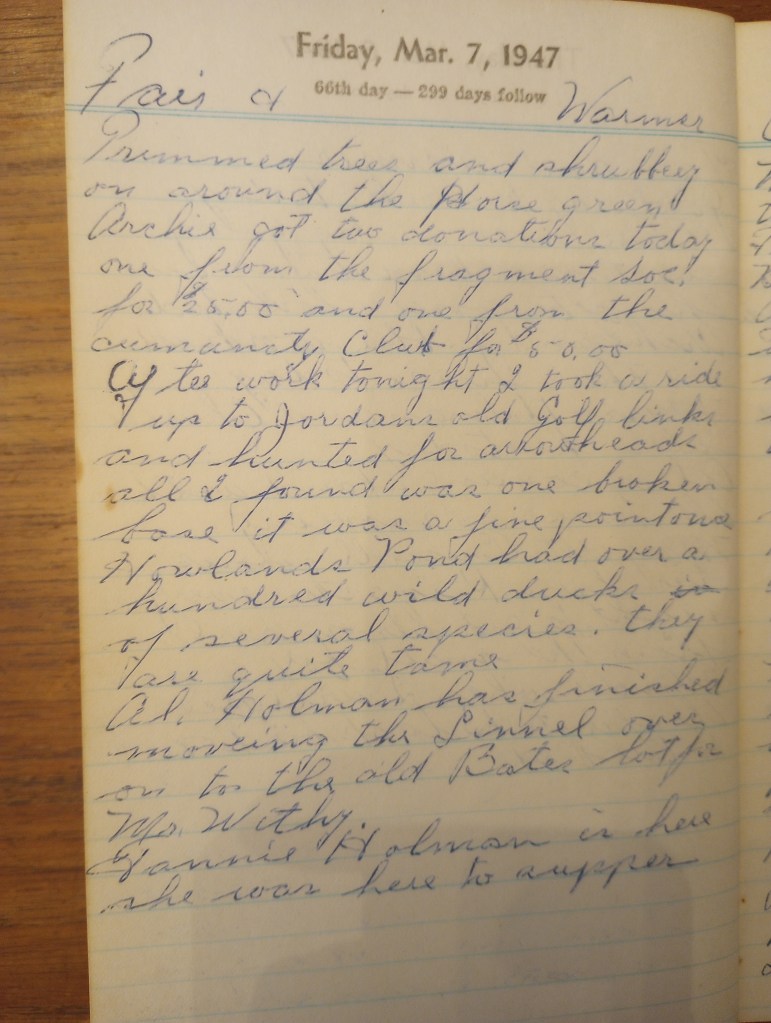 Friday, Mar. 7, 1947
66th day — 299 days follow
Fair & Warmer
Trimmed trees and shrubbery
on around the Horse green
Archie got two donations today
one from the fragment Soc.
for $25.00 and one from the
cumunaty Club for $50.00
After work tonight I took a ride
up to Jordans old Golf links
and hunted for arrowheads
all I found was one broken
base it was a fine point once
Howlands Pond had over a
hundred wild ducks
of several species. they
are quite tame
Al. Holman has finished
moveing the Linnel over
on to the old Bates lot for
Mr. Withy.
Fannie Holman is here
she was here to supper